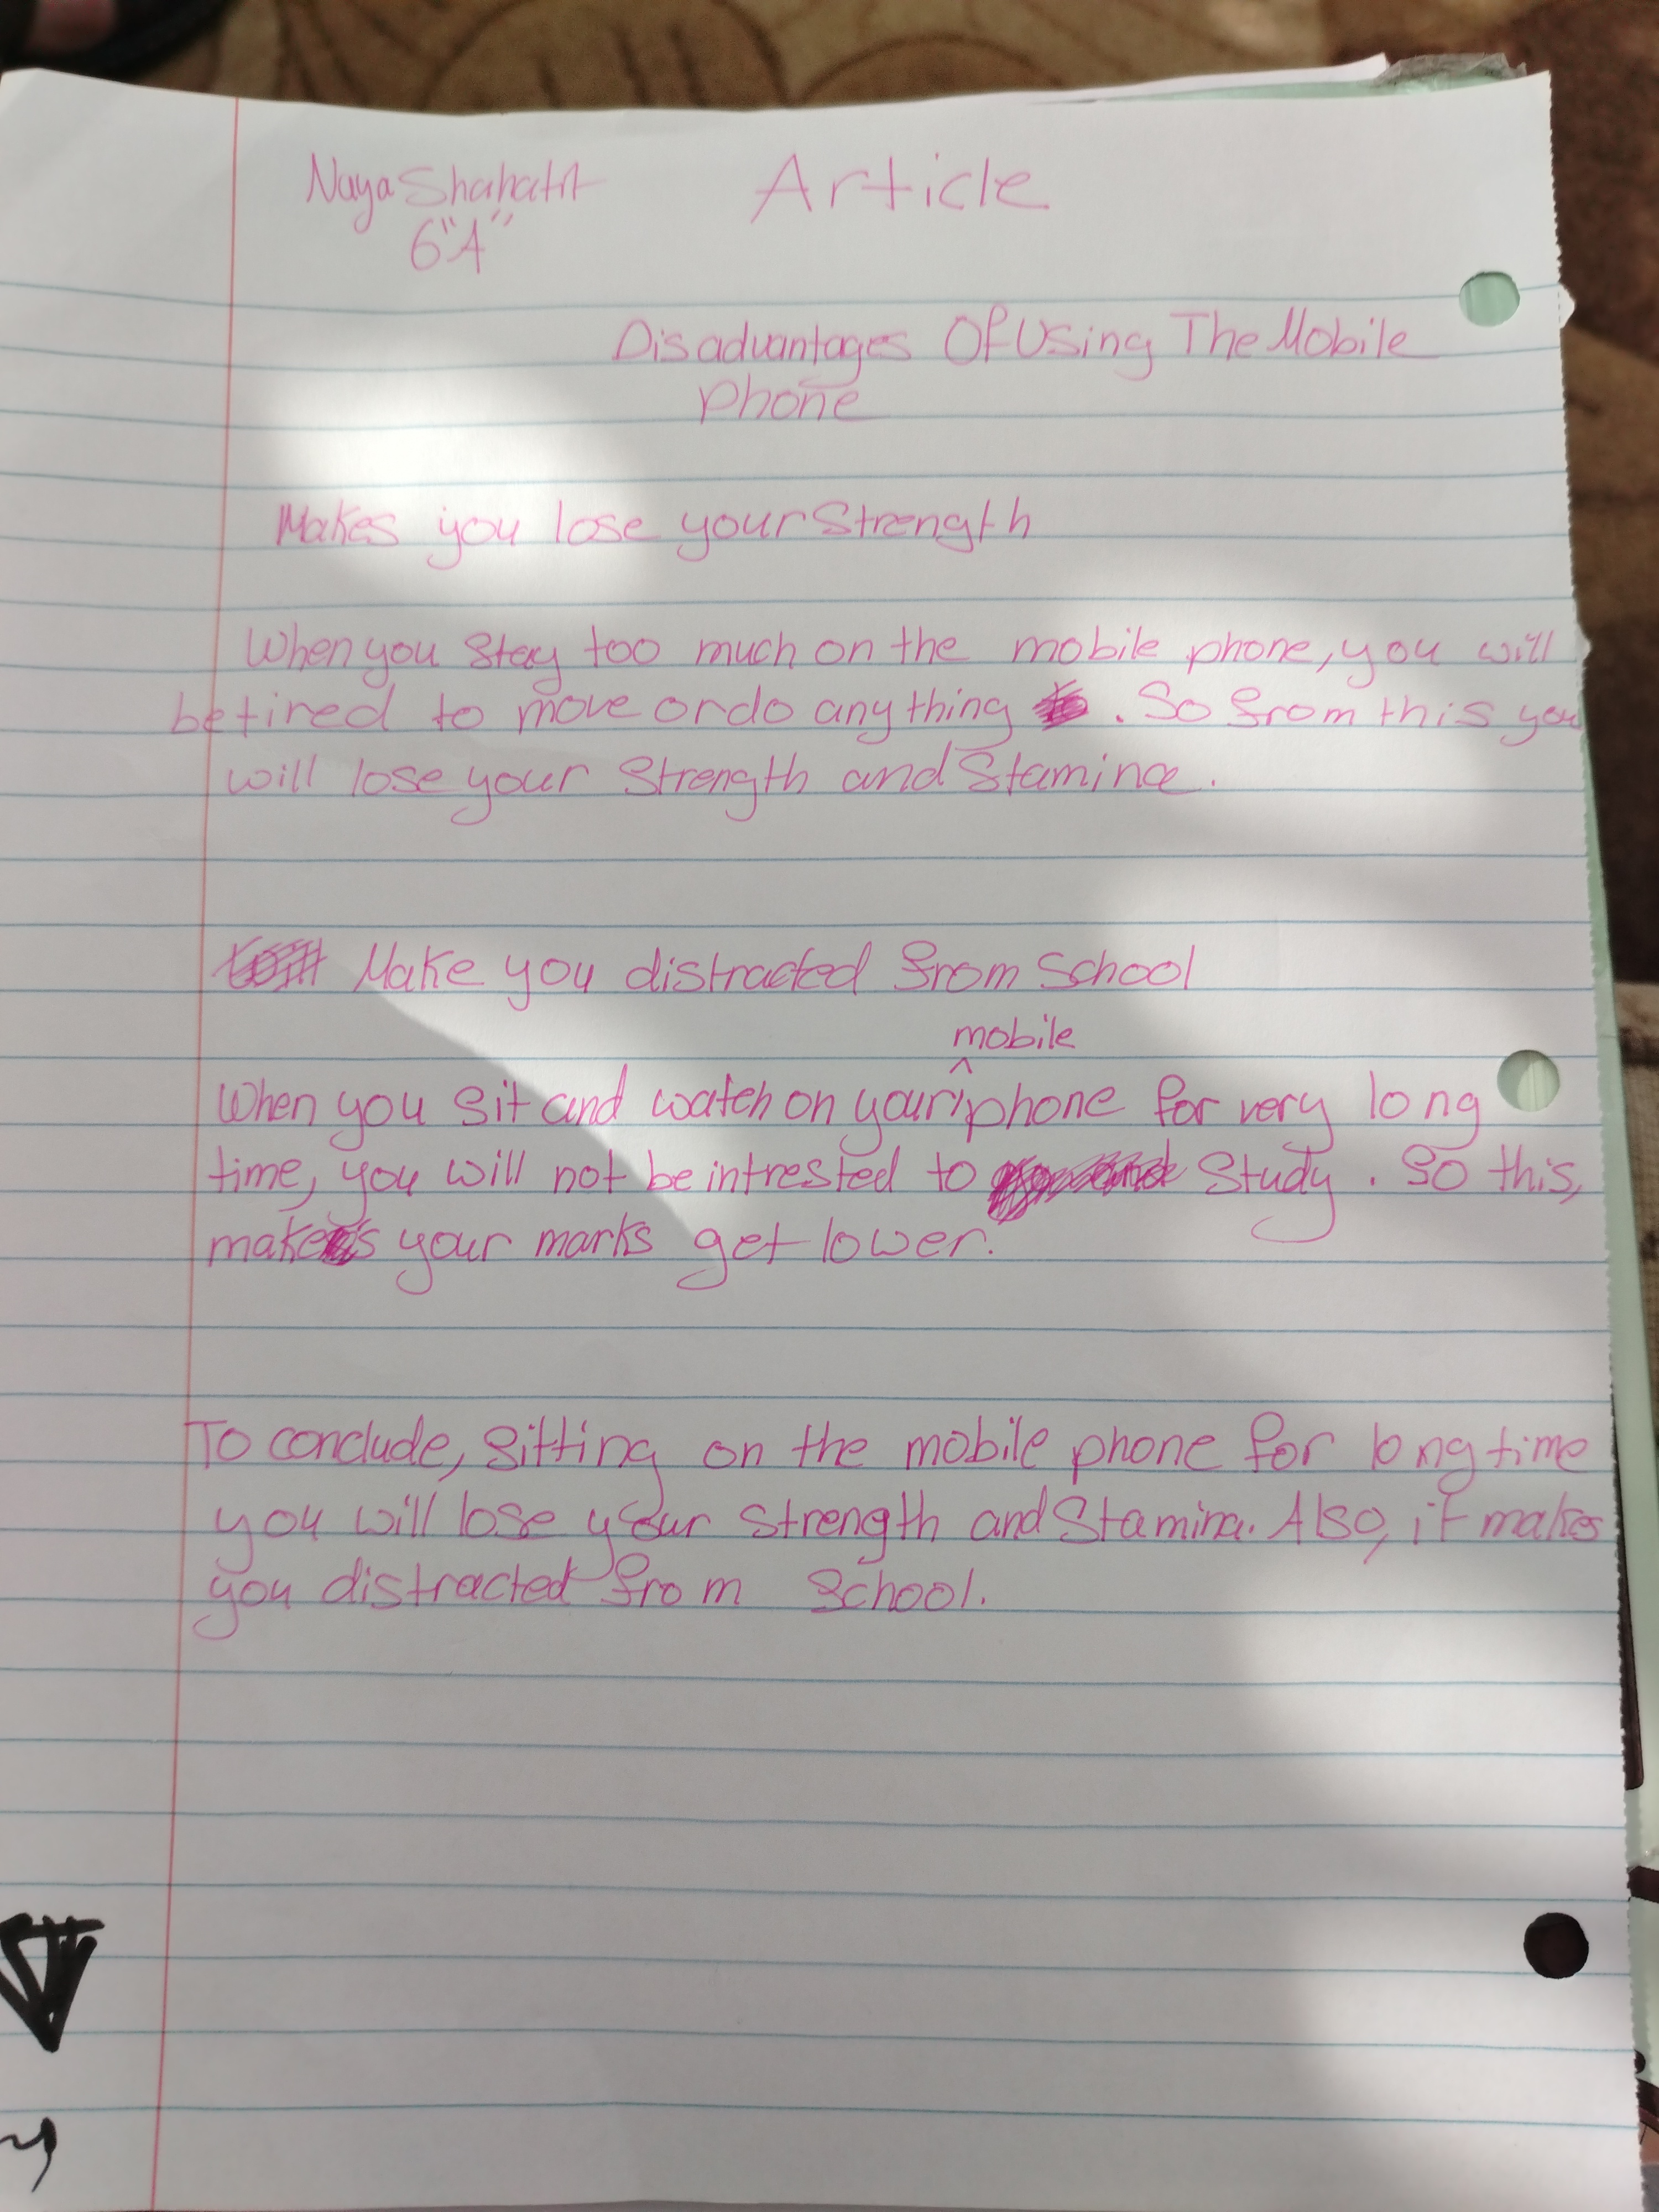 Naya Shahatit Article
6"A"
Disadvantages Of Using The Mobile
Phone
Makes you lose your Strength
When you stay too much on the mobile phone, you will
be tired to move or do any thing . So from this you
will lose your Strength and Stamina.
Make you distracted from School
mobile
When you sit and watch on your ^ phone for very long
time, you will not be intrested to Study . So this,
makes your marks get lower.
To conclude, Sitting on the mobile phone for long time
you will lose your strength and Stamina. Also, it makes
you distracted from School.